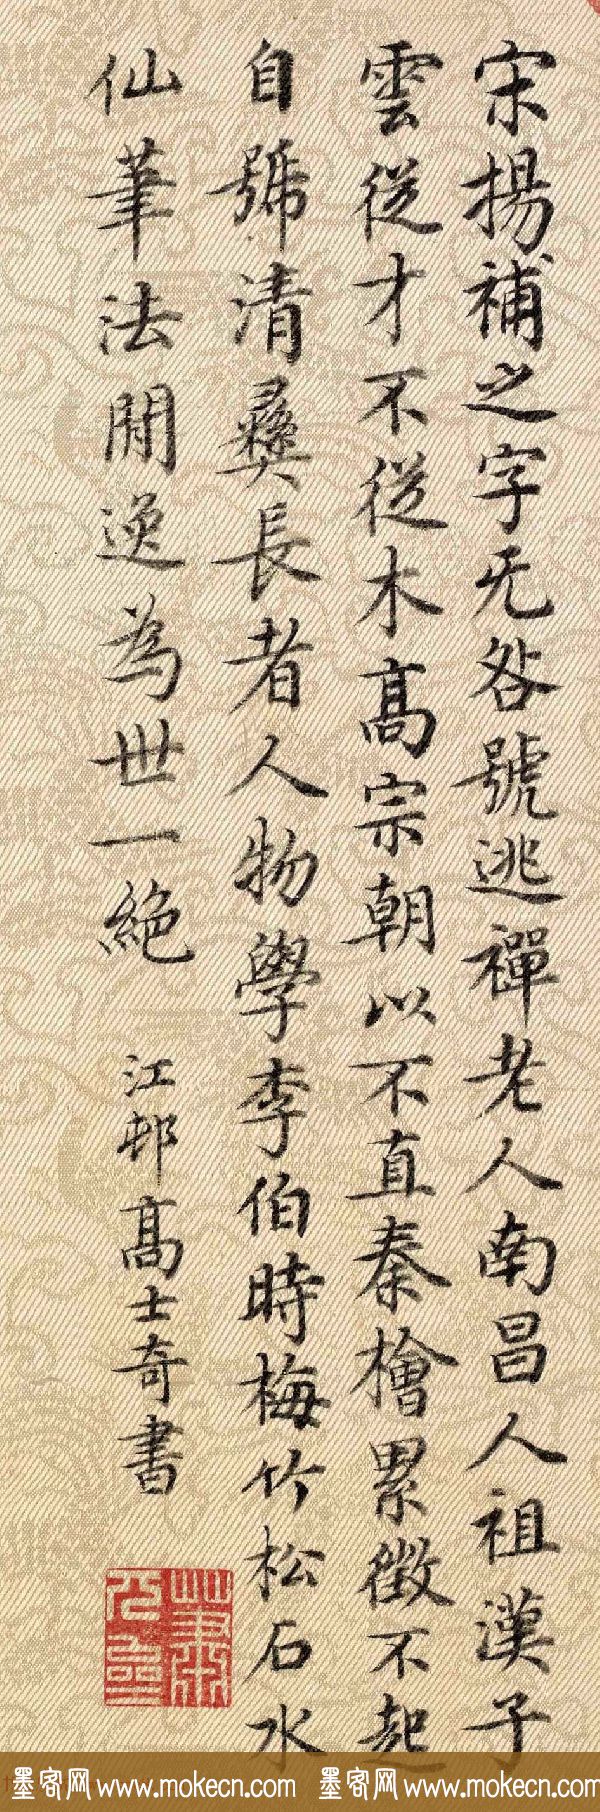 宋揚補之字无咎號逃禪老人南昌人祖漢子
雲從才不從木髙宗朝以不直秦檜累徵不起
自號清彛長者人物學李伯時梅竹松石水
仙筆法閒逸為世一絕
江邨髙士奇書
墨客网 www.mokecn.com 墨客网 www.mokecn.com